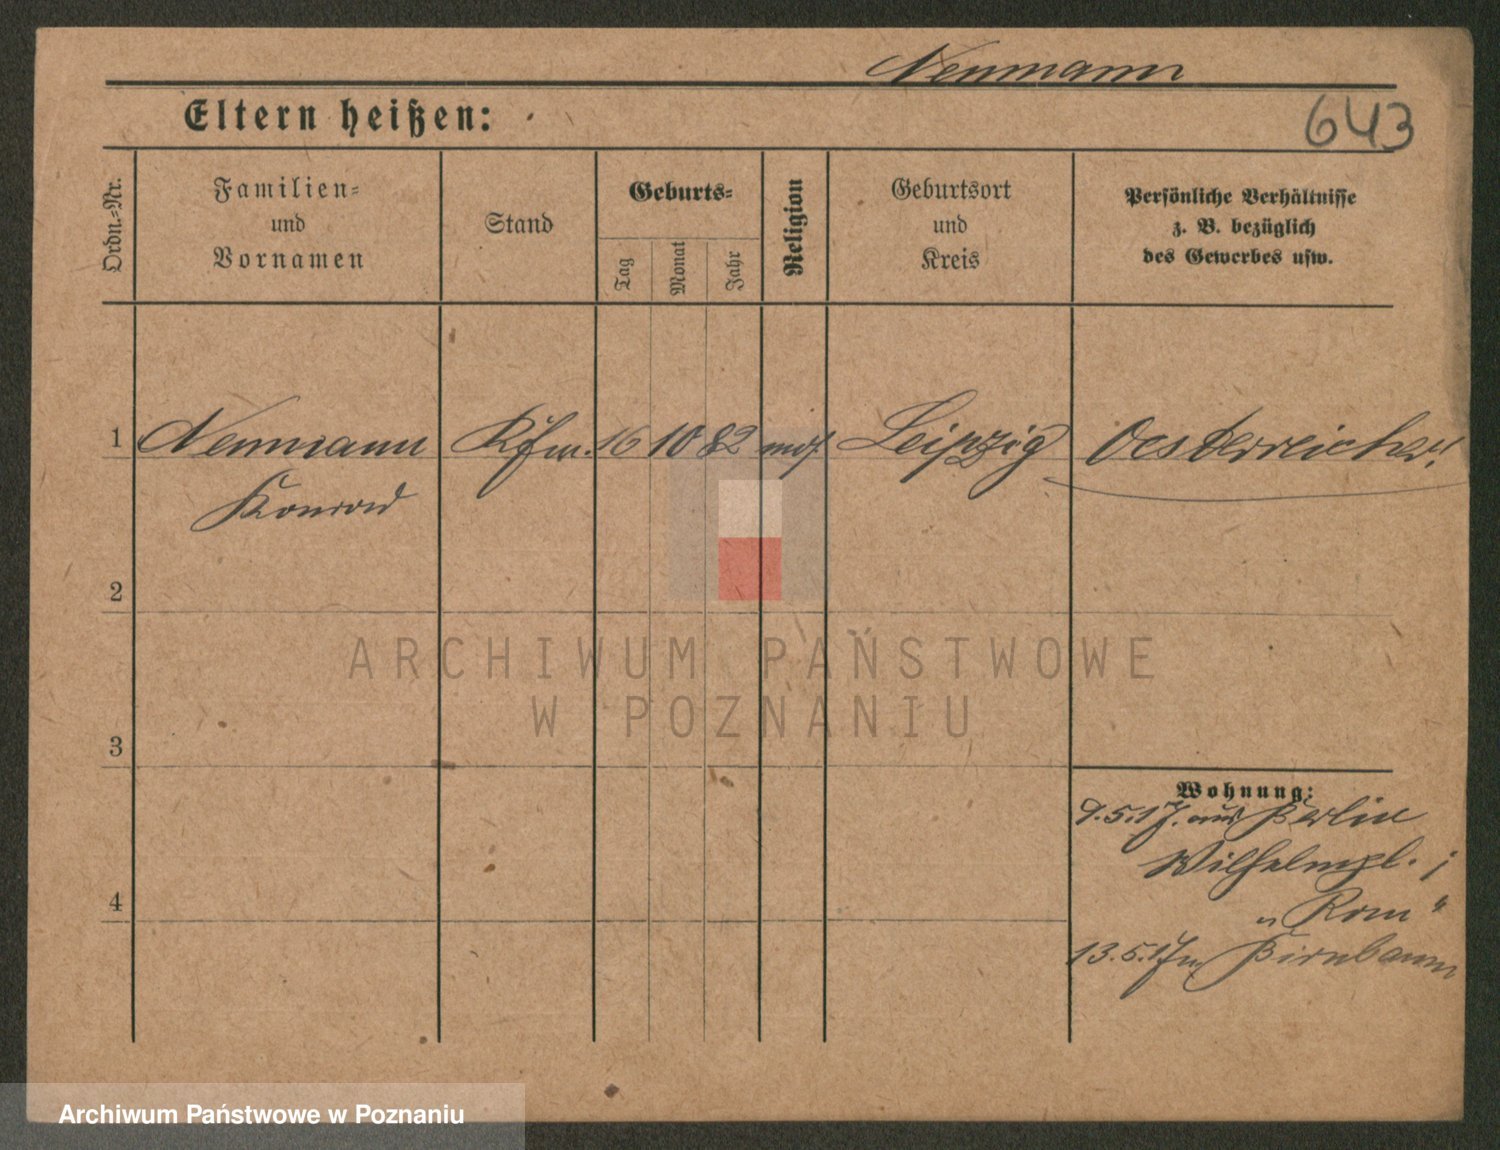 Neumann
Eltern heißen:
643
Ordn.-Nr.
Familien-
und
Vornamen
Stand
Geburts-
Tag
Monat
Jahr
Religion
Geburtsort
und
Kreis
Persönliche Verhältnisse
z. B. bezüglich
des Gewerbes usw.
1 Neumann Kfm. 16 10 82 mos. Leipzig Oesterreicher!
Konrad
2
3
4
Wohnung:
9.5.17. aus Berlin
Wilhelmpl. ;
„Rom“
13.5.17 n Birnbaum
ARCHIWUM PAŃSTWOWE
W POZNANIU
Archiwum Państwowe w Poznaniu